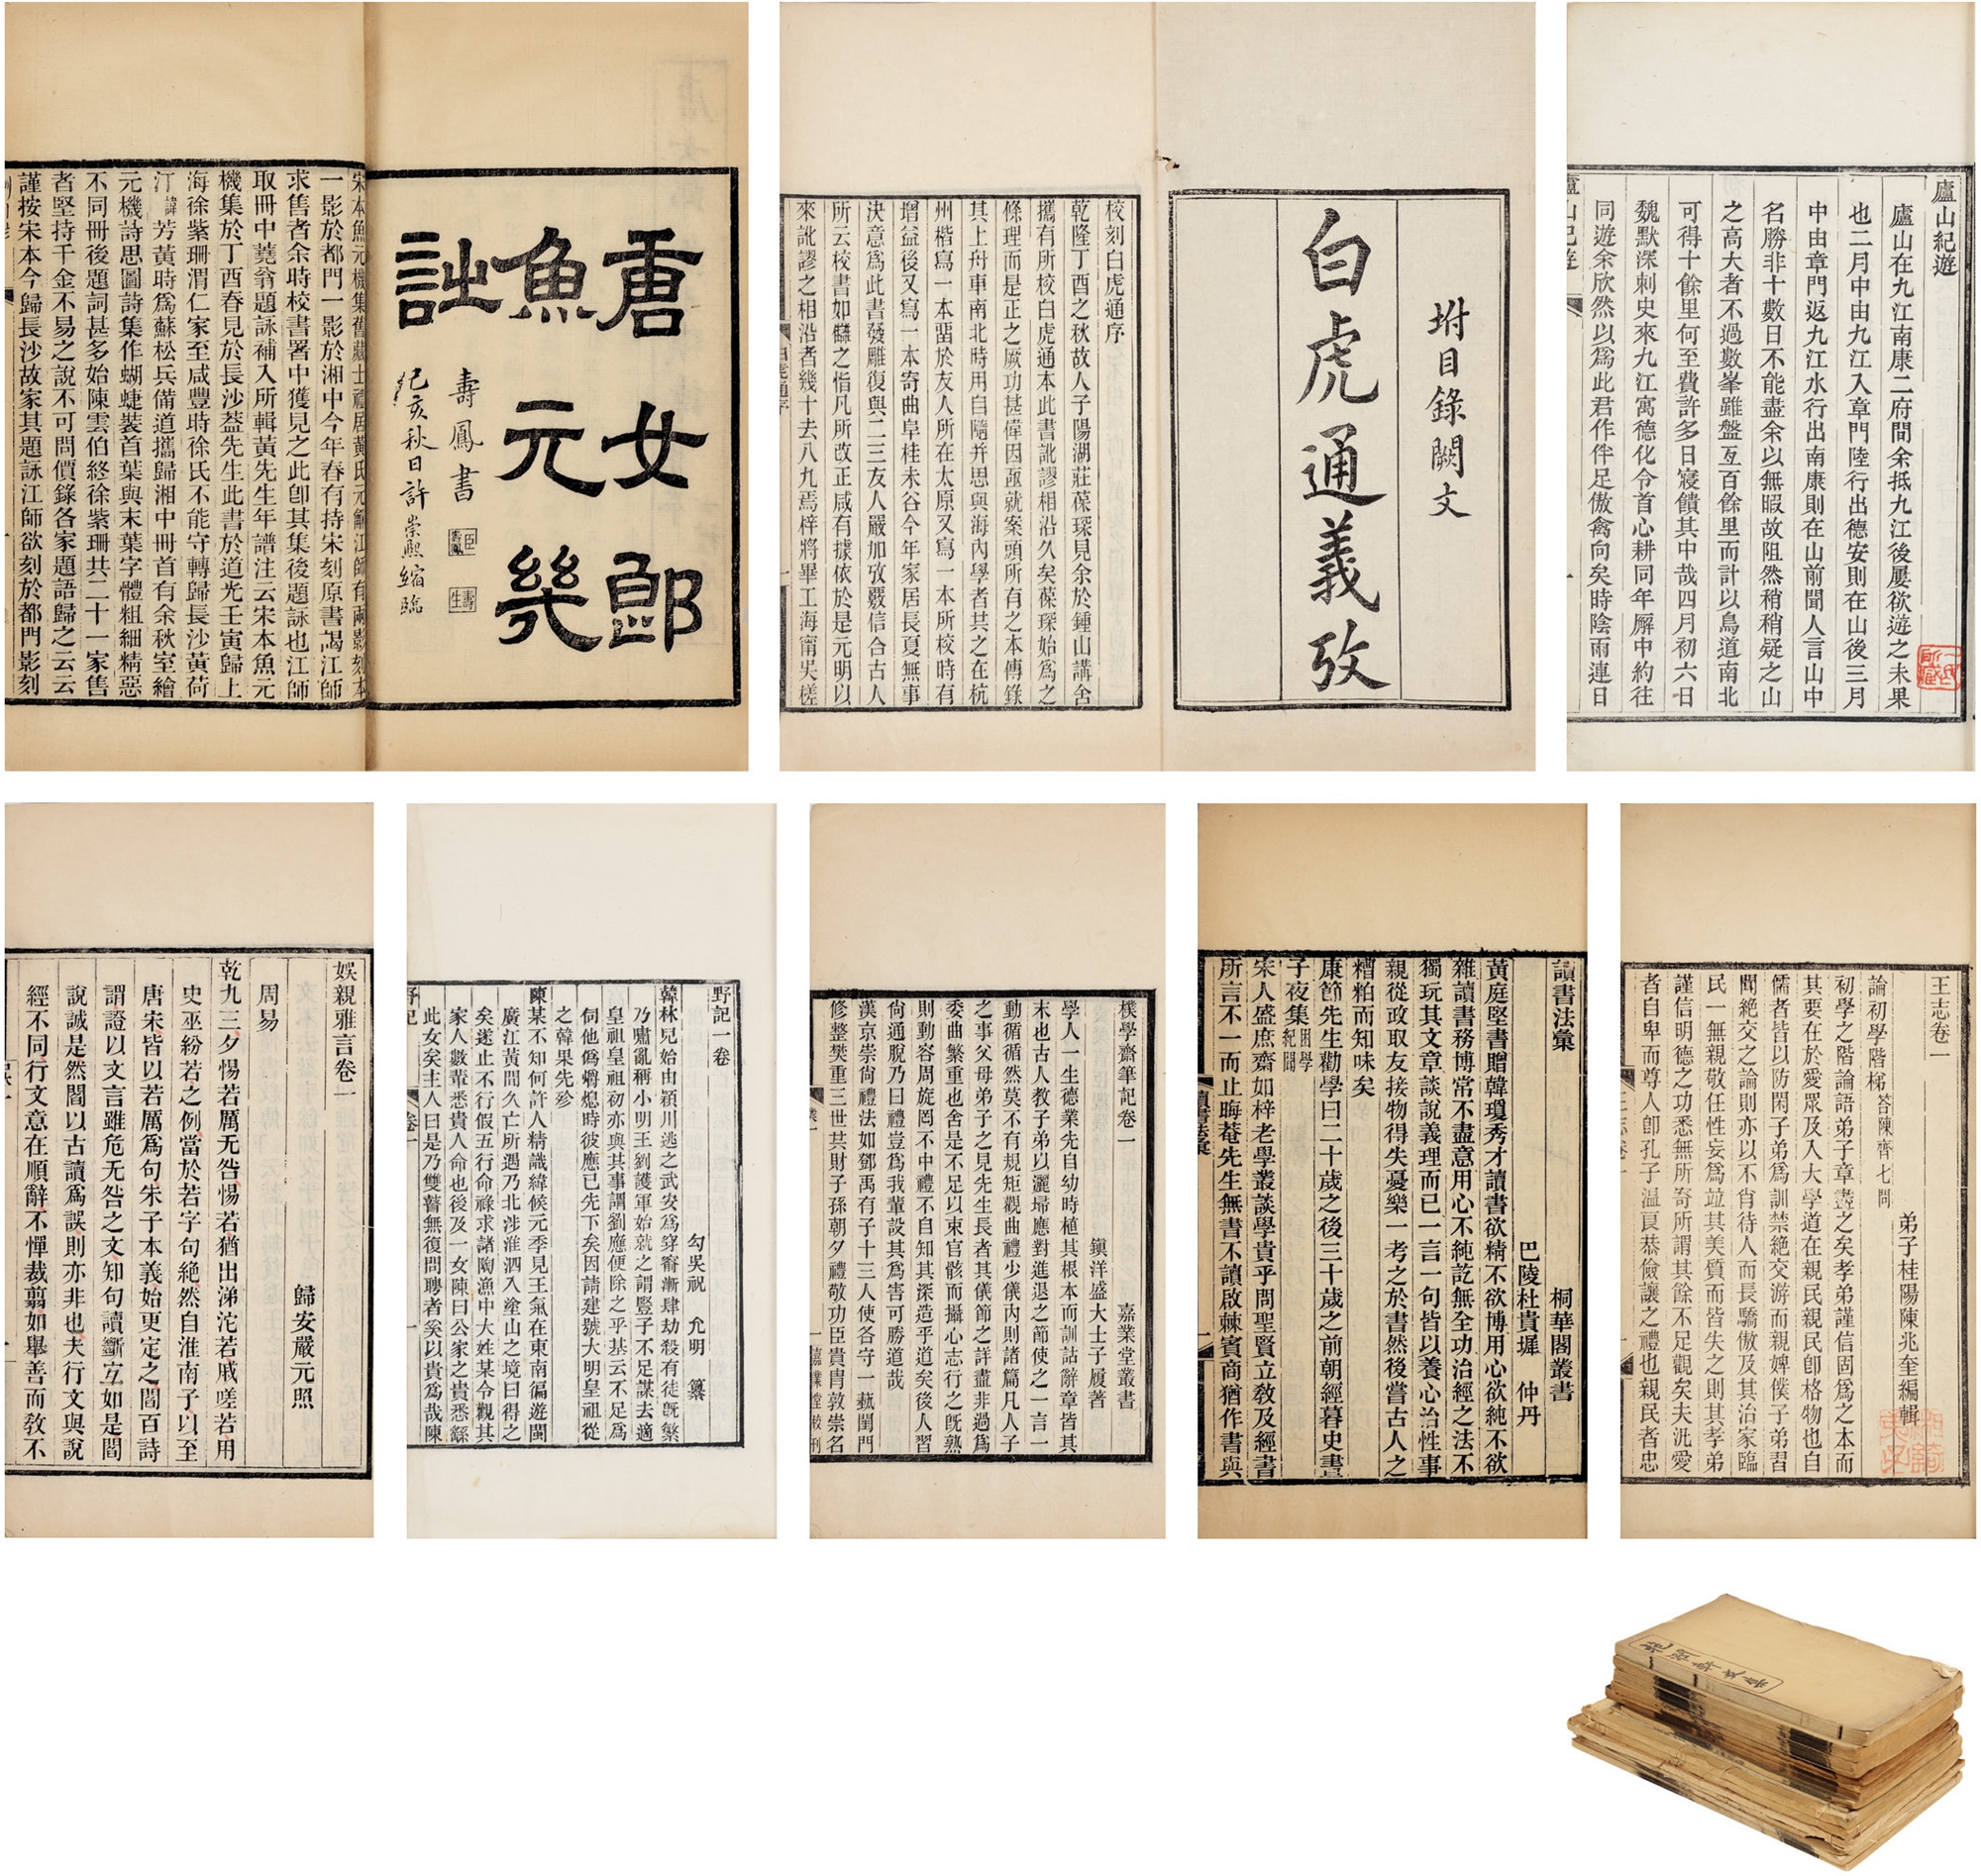 唐女郎
魚元機
詩
壽鳳書
己亥秋日許崇熙縮臨
宋本魚元機集舊藏士禮居黃氏元龢江師有兩影刻本
一影於都門一影於湘中今年春有持宋刻原書謁江師
求售者余時校書署中獲見之此卽其集後題詠也江師
取冊中蕘翁題詠補入所輯黃先生年譜注云宋本魚元
機集於丁酉春見於長沙葢先生此書於道光壬寅歸上
海徐紫珊渭仁家至咸豐時徐氏不能守轉歸長沙黃荷
汀諱芳黃時爲蘇松兵備道攜歸湘中冊首有余秋室繪
元機詩思圖詩集作蝴蜨裝首葉與末葉字體粗細精惡
不同冊後題詞甚多始陳雲伯終徐紫珊共二十一家售
者堅持千金不易之說不可問價錄各家題語歸之云云
謹按宋本今歸長沙故家其題詠江師欲刻於都門影刻
坿目錄闕文
白虎通義攷
校刻白虎通序
乾隆丁酉之秋故人子陽湖莊葆琛見余於鍾山講舍
攜有所校白虎通本此書訛謬相沿久矣葆琛始爲之
條理而是正之厥功甚偉因亟就案頭所有之本傳錄
其上舟車南北時用自隨并思與海內學者共之在杭
州楷寫一本畱於友人所在太原又寫一本所校時有
增益後又寫一本寄曲阜桂未谷今年家居長夏無事
決意爲此書發雕復與二三友人嚴加攷覈信合古人
所云校書如讎之恉凡所改正咸有據依於是元明以
來訛謬之相沿者幾十去八九焉梓將畢工海甯吳槎
白虎通序
廬山紀遊
廬山在九江南康二府間余抵九江後屢欲遊之未果
也二月中由九江入章門陸行出德安則在山後三月
中由章門返九江水行出南康則在山前聞人言山中
名勝非十數日不能盡余以無暇故阻然稍稍疑之山
之高大者不過數峯雖盤亙百餘里而計以鳥道南北
可得十餘里何至費許多日寢饋其中哉四月初六日
魏默深刺史來九江寓德化令首心耕同年廨中約往
同遊余欣然以爲此君作伴足傲禽向矣時陰雨連日
廬山紀遊
娛親雅言卷一
歸安嚴元照
周易
乾九三夕惕若厲无咎惕若猶出涕沱若戚嗟若用
史巫紛若之例當於若字句絶然自淮南子以至
唐宋皆以若厲爲句朱子本義始更定之閻百詩
謂證以文言雖危无咎之文知句讀斷宜如是閻
說誠是然閻以古讀爲誤則亦非也夫行文與說
經不同行文意在順辭不憚裁翦如舉善而敎不
野記一卷
勾吳祝允明纂
韓林兒始由潁川逃之武安爲穿窬漸肆劫殺有徒旣繁
乃嘯亂稱小明王劉護軍始就之謂豎子不足謀去適
皇祖皇祖初亦與其事謂劉應便除之乎基云不足爲
伺他僞爝熄時彼應已先下矣因請建號大明皇祖從
之韓果先殄
陳某不知何許人精識緯候元季見王氣在東南徧遊閩
廣江黃間久亡所遇乃北涉淮泗入塗山之境曰得之
矣遂止不行假五行命祿求諸陶漁中大姓某令觀其
家人數輩悉貴人命也後及一女陳曰公家之貴悉繇
此女矣主人曰是乃雙瞽無復問聘者奚以貴爲哉陳
野記
卷一
樸學齋筆記卷一
嘉業堂叢書
鎭洋盛大士子履著
學人一生德業先自幼時植其根本而訓詁辭章皆其
末也古人敎子弟以灑埽應對進退之節使之一言一
動循循然莫不有規矩觀曲禮少儀內則諸篇凡人子
之事父母弟子之見先生長者其儀節之詳盡非過爲
委曲繁重也舍是不足以束官骸而攝心志行之旣熟
則動容周旋罔不中禮不自知其深造乎道矣後人習
尙通脫乃曰禮豈爲我輩設其爲害可勝道哉
漢京崇尙禮法如鄧禹有子十三人使各守一蓺閨門
修整樊重三世共財子孫朝夕禮敬功臣貴胄敦崇名
嘉業堂校刊
讀書法彙
桐華閣叢書
巴陵杜貴墀仲丹
黃庭堅書贈韓瓊秀才讀書欲精不欲博用心欲純不欲
雜讀書務博常不盡意用心不純訖無全功治經之法不
獨玩其文章談說義理而已一言一句皆以養心治性事
親從政取友接物得失憂樂一考之於書然後嘗古人之
糟粕而知味矣
康節先生勸學曰二十歲之後三十歲之前朝經暮史晝
子夜集困學紀聞
宋人盛庶齋如梓老學叢談學貴乎問聖賢立敎及經書
所言不一而止晦菴先生無書不讀啟棘賓商猶作書與
讀書法彙
王志卷一
弟子桂陽陳兆奎編輯
論初學階梯荅陳齊七問
初學之階論語弟子章盡之矣孝弟謹信固爲之本而
其要在於愛眾及入大學道在親民親民卽格物也自
儒者皆以防閑子弟爲訓禁絶交游而親婢僕子弟習
聞絶交之論則亦以不肖待人而長驕傲及其治家臨
民一無親敬任性妄爲竝其美質而皆失之則其孝弟
謹信明德之功悉無所寄所謂其餘不足觀矣夫汎愛
者自卑而尊人卽孔子溫良恭儉讓之禮也親民者忠
王志卷一